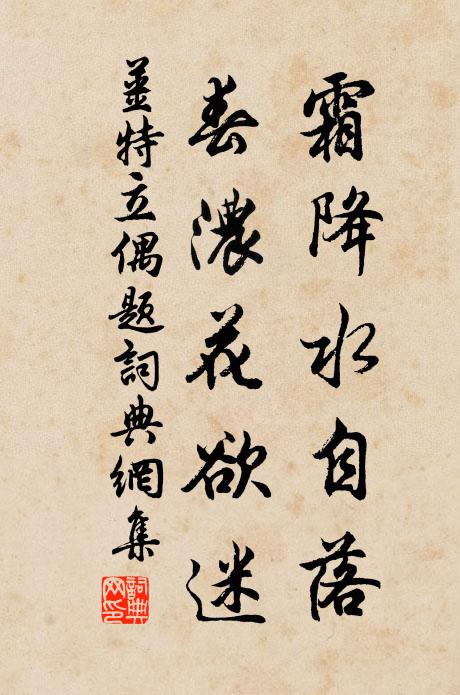 霜降水自落
春濃花欲迷
姜特立偶題詞典網集
詞典網印